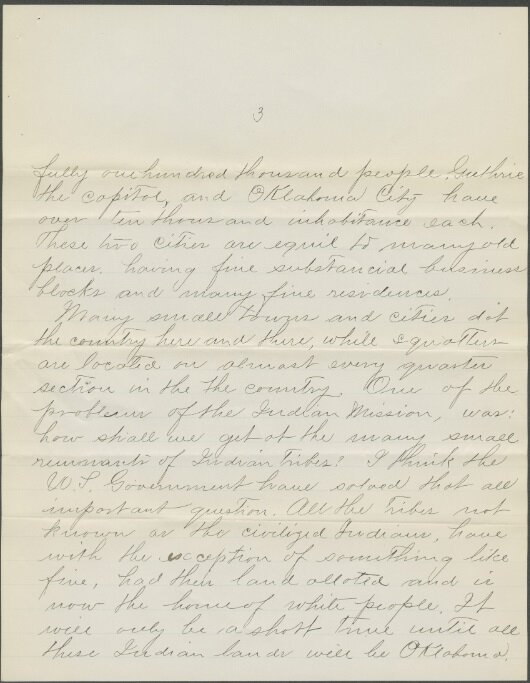 3
fully one hundred thousand people. Guthrie
the capitol, and Oklahoma City have
over ten thousand inhabitance each.
These two cities are equil to many old
places. having fine substancial business
blocks and many fine residences.
Many small towns and cities dot
the country here and there, while squatters
are located on almost every quarter
section in the the country. One of the
problem of the Indian Mission, was:
how shall we get at the many small
remnants of Indian tribes? I think the
U.S. Government have solved that all
important question. All the tribes not
known as the civilized Indians, have
with the exception of something like
five, had their land alloted and is
now the home of white people. It
will only be a short time until all
these Indian lands will be Oklahoma.